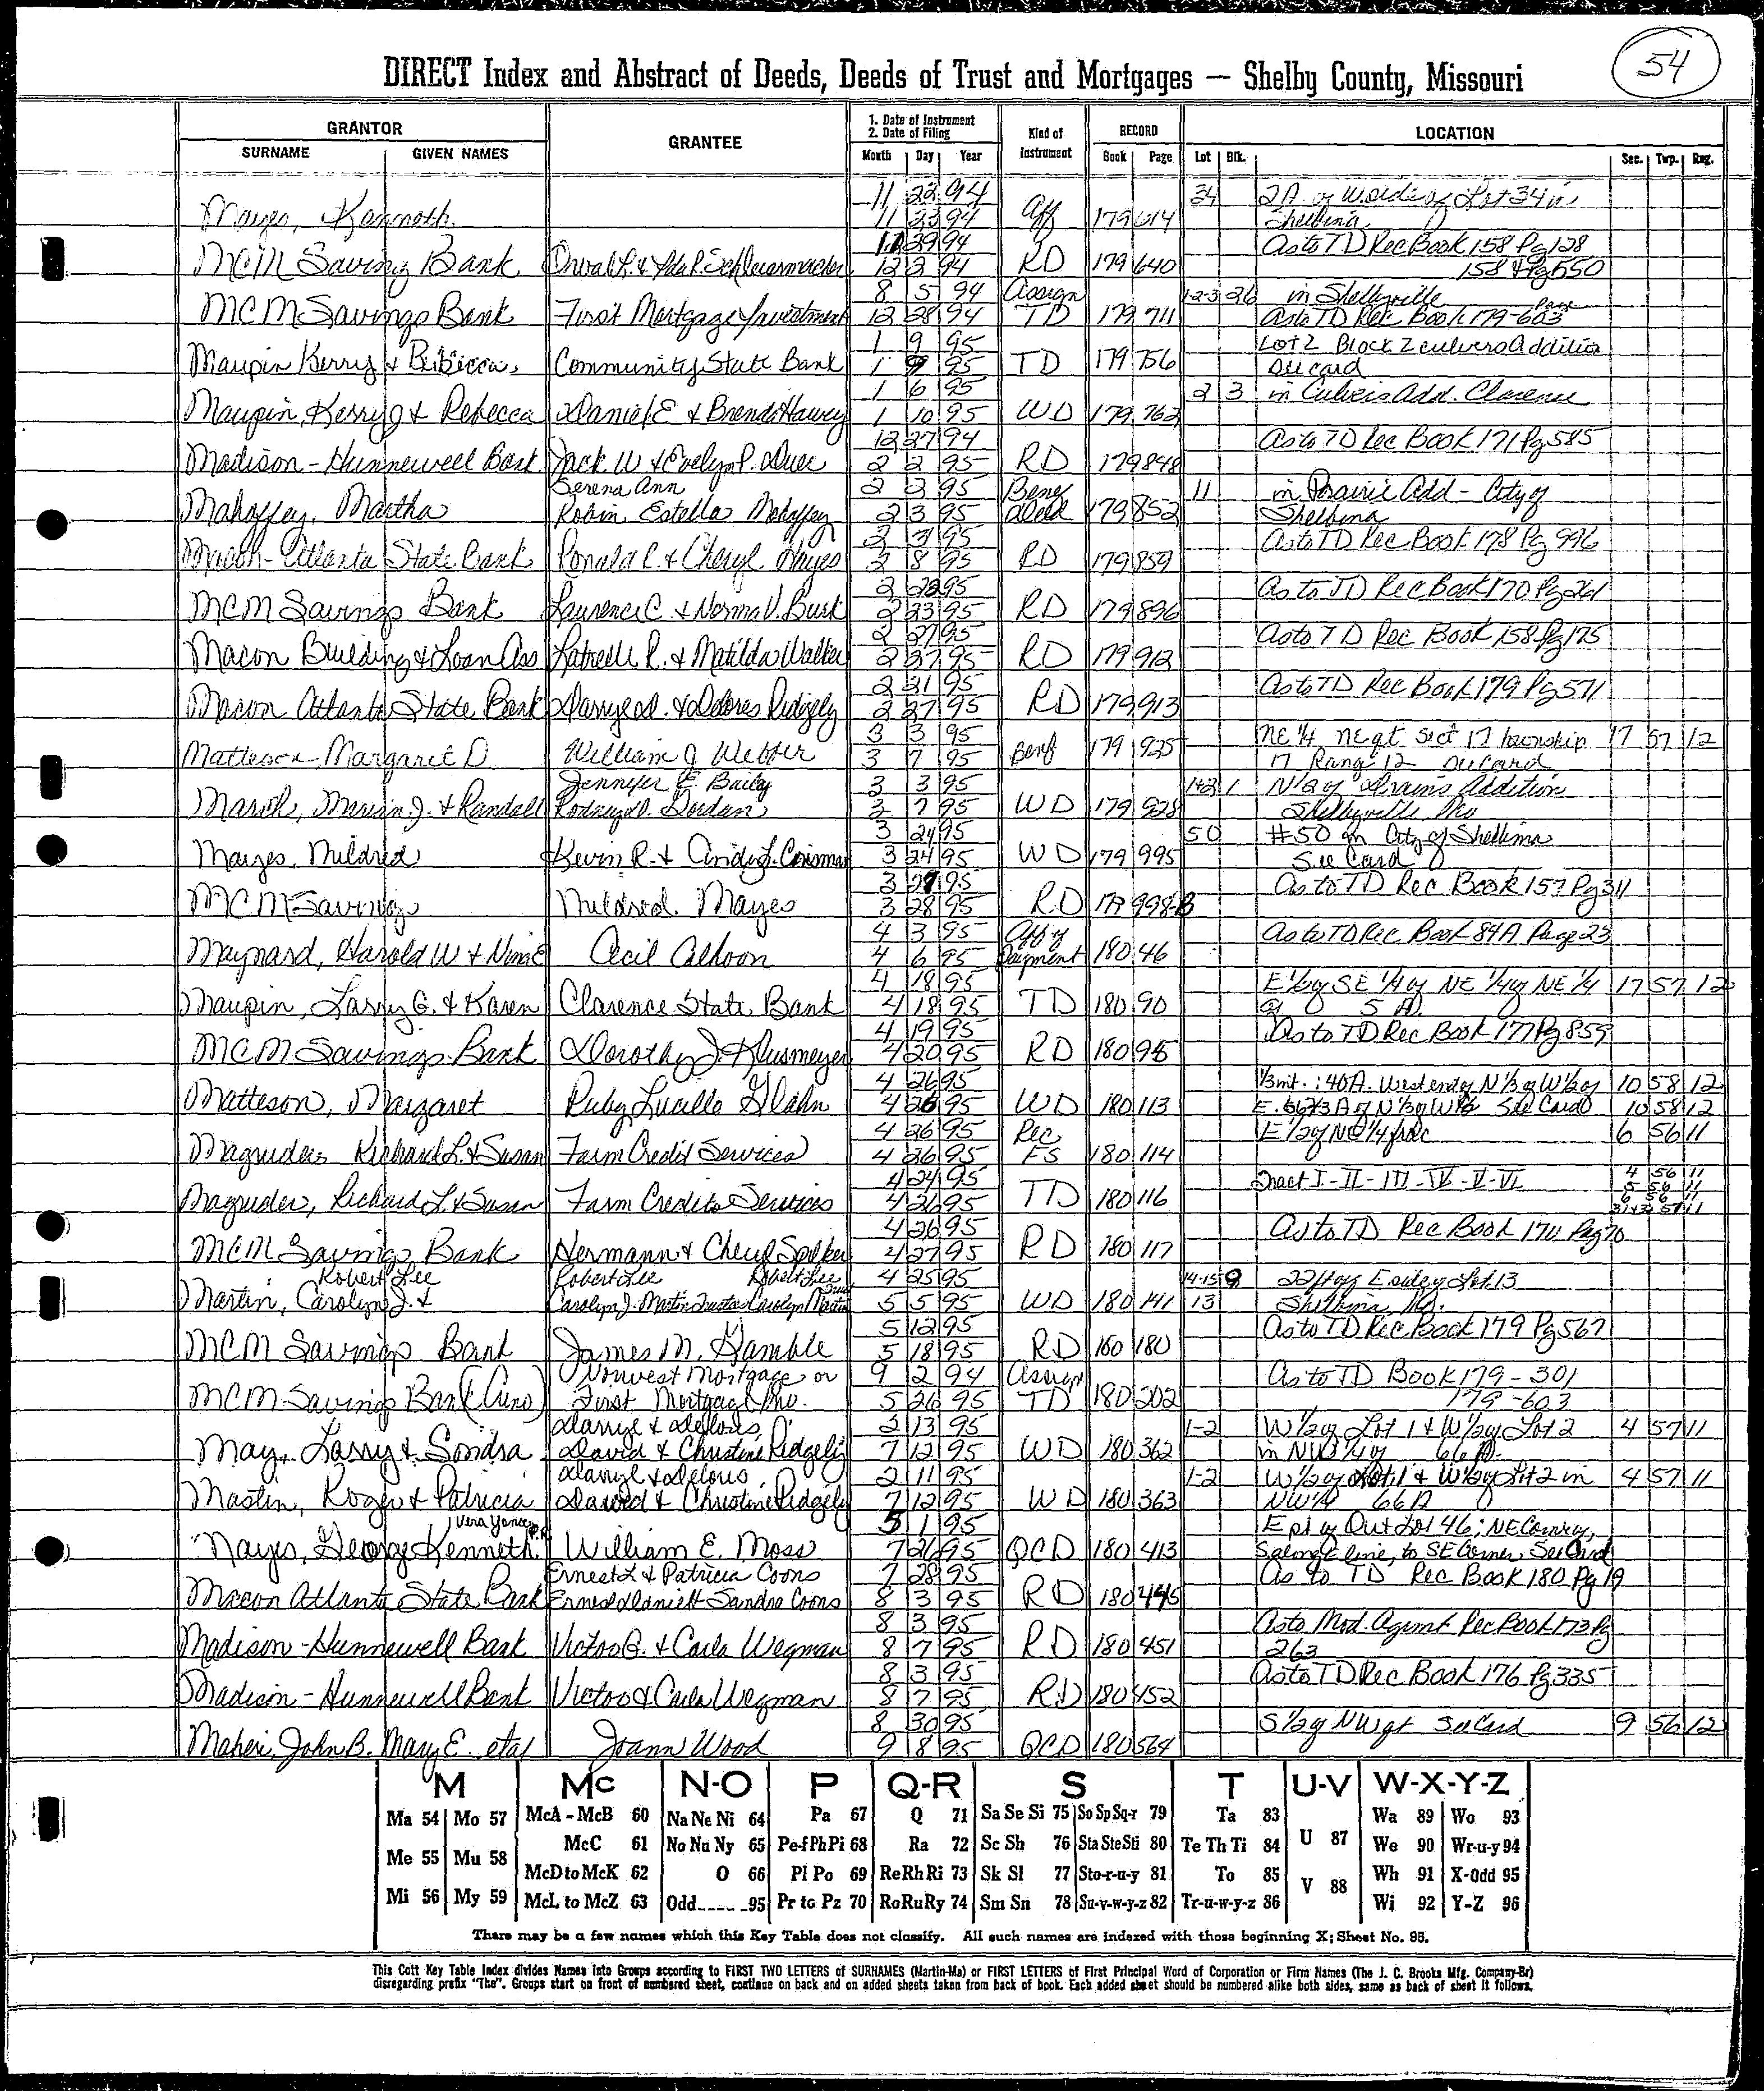 54
DIRECT Index and Abstract of Deeds, Deeds of Trust and Mortgages — Shelby County, Missouri
GRANTOR GRANTEE 1. Date of Instrument 2. Date of Filing Kind of Instrument RECORD LOCATION
SURNAME GIVEN NAMES Month Day Year Book Page Lot Blk. Sec. Twp. Rng.
11 22 94 34 2A. of W. side of Lot 34 in
Mayes, Kenneth 11 23 94 Aff 179 614 Shelbina
29 94 As to TD Rec Book 158 Pg 128
MCM Saving Bank 12 2 94 RD 179 640 158 Pg 550
8 5 94 Assign 1-2-3 26 in Shelbyville
MCM Savings Bank First Mortgage Investment 12 28 94 TD 179 711 As to TD Rec Book 179-603
1 9 95 Lot 2 Block 2 Culvers Addition
Maupin Kerry & Rebecca Community State Bank 1 9 95 TD 179 756 See card
1 6 95 2 3 in Culvers Add. Clarence
Maupin, Kerry J & Rebecca Daniel E. & Brenda 1 10 95 WD 179 762
12 27 94 As to TD Rec Book 171 Pg 585
Madison-Hunnewell Bank Jack W & Evelyn P. 2 2 95 RD 179 848
Serena Ann 2 3 95 Benef 11 in Prairie Add - City of
Mahaffey, Martha Robin Estella Mahaffey 2 3 95 Deed 179 852 Shelbina
2 3 95 As to TD Rec Book 178 Pg 996
Macon-Atlanta State Bank Ronald R. & Cheryl Hayes 2 8 95 RD 179 859
2 22 95 As to TD Rec Book 170 Pg 261
MCM Savings Bank Laurence C. & Norma V. Burk 2 23 95 RD 179 896
2 27 95 As to TD Rec Book 158 Pg 175
Macon Building & Loan Ass Latrelle R. & Matilda Walker 2 27 95 RD 179 912
2 21 95 As to TD Rec Book 179 Pg 571
Macon Atlanta State Bank Darryl D. & Delores Ridgely 2 27 95 RD 179 913
3 3 95 NE 1/4 NE qt Sect 17 township 17 57 12
Matteson Margaret D William J Webber 3 7 95 Benf 179 925 17 Range 12 See Card
Jennifer E. Bailey 3 3 95 1+2 1 N 1/2 of Addition
Marsh, Marian J. & Randall Rodney D. Jordan 3 7 95 WD 179 928 Shelbyville Mo
3 24 95 50 #50 in City of Shelbina
Mayes, Mildred Kevin R. & Cindy L. Crisman 3 24 95 WD 179 995 See Card
3 27 95 As to TD Rec Book 157 Pg 311
MCM Savings Mildred Mayes 3 28 95 RD 179 998-B
4 3 95 Aff of As to TD Rec Book 84A Page 23
Maynard, Harold W & Nina E Cecil Calhoon 4 6 95 Payment 180 46
4 18 95 E 1/2 of SE 1/4 of NE 1/4 of NE 1/4 17 57 12
Maupin, Larry G. & Karen Clarence State Bank 4 18 95 TD 180 90 5 A.
4 19 95 As to TD Rec Book 177 Pg 859
MCM Savings Bank Dorothy J. Klusmeyer 4 20 95 RD 180 95
4 26 95 1/3 int.: 40A. West end of N 1/3 of W 1/2 of 10 58 12
Matteson, Margaret Ruby Lucille Glahn 4 26 95 WD 180 113 E. 66 2/3 A of N 1/3 of W 1/2 See Card 10 58 12
4 26 95 Rec E 1/2 of NE 1/4 frac 6 56 11
Magruder Richard L. & Susan Farm Credit Services 4 26 95 FS 180 114
4 24 95 Tract I-II-III-IV-V-VI 4 56 11
5 56 11
Magruder, Richard L. & Susan Farm Credit Services 4 26 95 TD 180 116 6 56 11
57 11
4 26 95 As to TD Rec Book 170 Pg 70
MCM Savings Bank Hermann & Cheryl Spilker 4 27 95 RD 180 117
Robert Lee Robert Lee Robert Lee 4 25 95 14-15 9 22 ft of E side of Lot 13
Martin, Carolyn J. & Carolyn J. Martin Trustas Carolyn Martin 5 5 95 WD 180 141 13 Shelbina, Mo.
5 12 95 As to TD Rec Book 179 Pg 567
MCM Savings Bank James M. Gamble 5 18 95 RD 180 180
Norwest Mortgage or 9 2 94 Assign As to TD Book 179-301
MCM Savings Bank First Mortgage Inv. 5 26 95 TD 180 202 179-603
Darryl & Delores 2 13 95 1-2 W 1/2 of Lot 1 & W 1/2 of Lot 2 4 57 11
May, Larry & Sondra David & Christine Ridgely 7 12 95 WD 180 362 in NW 1/4 of 66 A.
Darryl & Delores 2 11 95 1-2 W 1/2 of Lot 1 & W 1/2 of Lot 2 in 4 57 11
Mastin, Roger & Patricia David & Christine Ridgely 7 12 95 WD 180 363 NW 1/4 66 A
Vera P.R. 5 1 95 E pt of Out Lot 46; NE Corner,
Mayes, George Kenneth William E. Moss 7 21 95 QCD 180 413 S along E line, to SE Corner, See Card
Ernest L & Patricia Coons 7 28 95 As to TD Rec Book 180 Pg 19
Macon Atlanta State Bank Sandra Coons 8 3 95 RD 180 445
8 3 95 As to Mod. Agrmt Rec Book 172 Pg
Madison-Hunnewell Bank Victor G. & Carla Wegman 8 7 95 RD 180 451 263
8 3 95 As to TD Rec Book 176 Pg 335
Madison-Hunnewell Bank Victor & Carla Wegman 8 7 95 RD 180 452
8 30 95 S 1/2 of NW qt See Card 9 56 12
Maher, John B. Mary E. etal Joann Wood 9 8 95 QCD 180 564
M Mc N-O P Q-R S T U-V W-X-Y-Z
Ma 54 Mo 57 McA-McB 60 Na Ne Ni 64 Pa 67 Q 71 Sa Se Si 75 So Sp Sq-r 79 Ta 83 U 87 Wa 89 Wo 93
Me 55 Mu 58 McC 61 No Nu Ny 65 Pe-f Ph Pi 68 Ra 72 Sc Sh 76 Sta Ste Sti 80 Te Th Ti 84 We 90 Wr-u-y 94
McD to McK 62 O 66 Pl Po 69 Re Rh Ri 73 Sk Sl 77 Sto-r-u-y 81 To 85 V 88 Wh 91 X-Odd 95
Mi 56 My 59 McL to McZ 63 Odd 95 Pr to Pz 70 Ro Ru Ry 74 Sm Sn 78 Su-v-w-y-z 82 Tr-u-w-y-z 86 Wi 92 Y-Z 96
There may be a few names which this Key Table does not classify. All such names are indexed with those beginning X; Sheet No. 95.
This Cott Key Table Index divides Names into Groups according to FIRST TWO LETTERS of SURNAMES (Martin-Ma) or FIRST LETTERS of First Principal Word of Corporation or Firm Names (The J. C. Brooks Mfg. Company-Br)
disregarding prefix "The". Groups start on front of numbered sheet, continue on back and on added sheets taken from back of book. Each added sheet should be numbered alike both sides, same as back of sheet it follows.